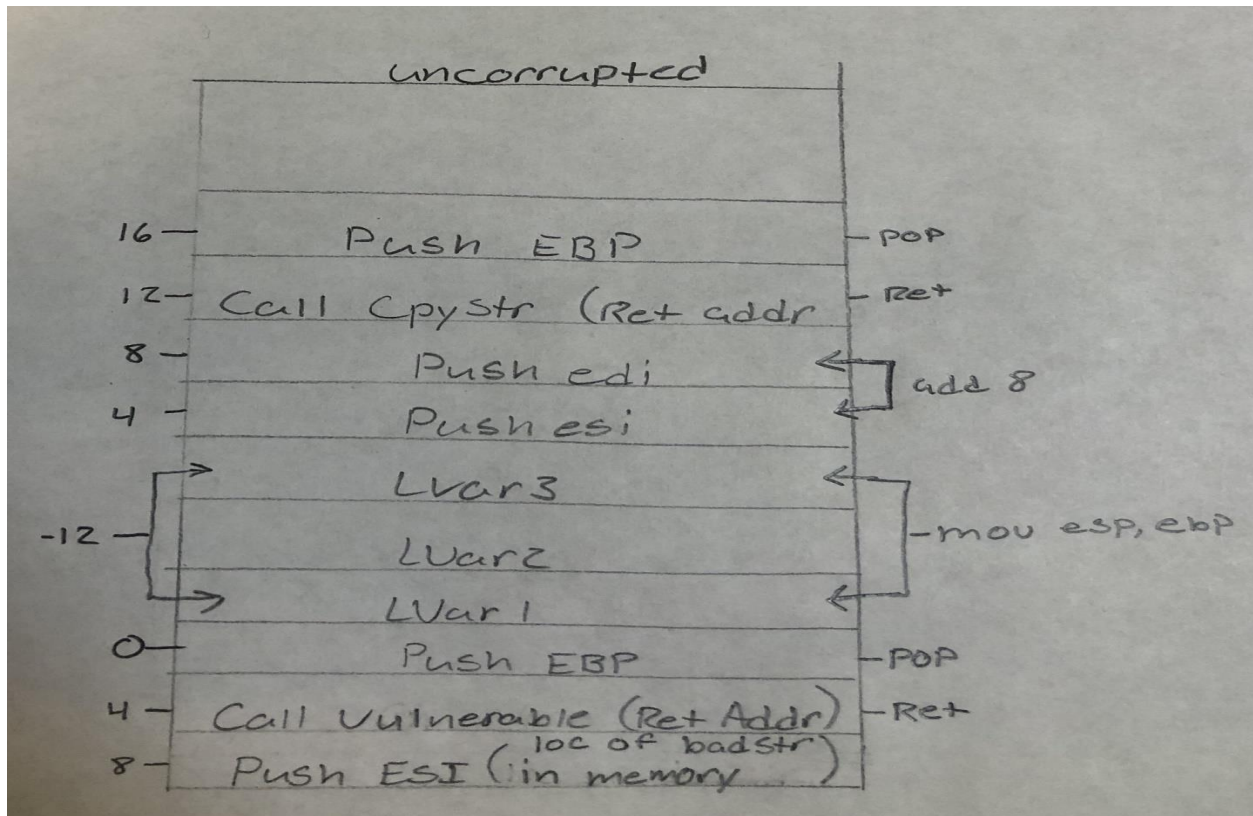 uncorrupted
16 — Push EBP — POP
12 — Call Cpystr (Ret addr — Ret
8 — Push edi
add 8
4 — Push esi
LVar3
-12 — mov esp, ebp
LVar2
LVar1
0 — Push EBP — POP
4 — Call Vulnerable (Ret Addr) — Ret
loc of badstr
8 — Push ESI (in memory )